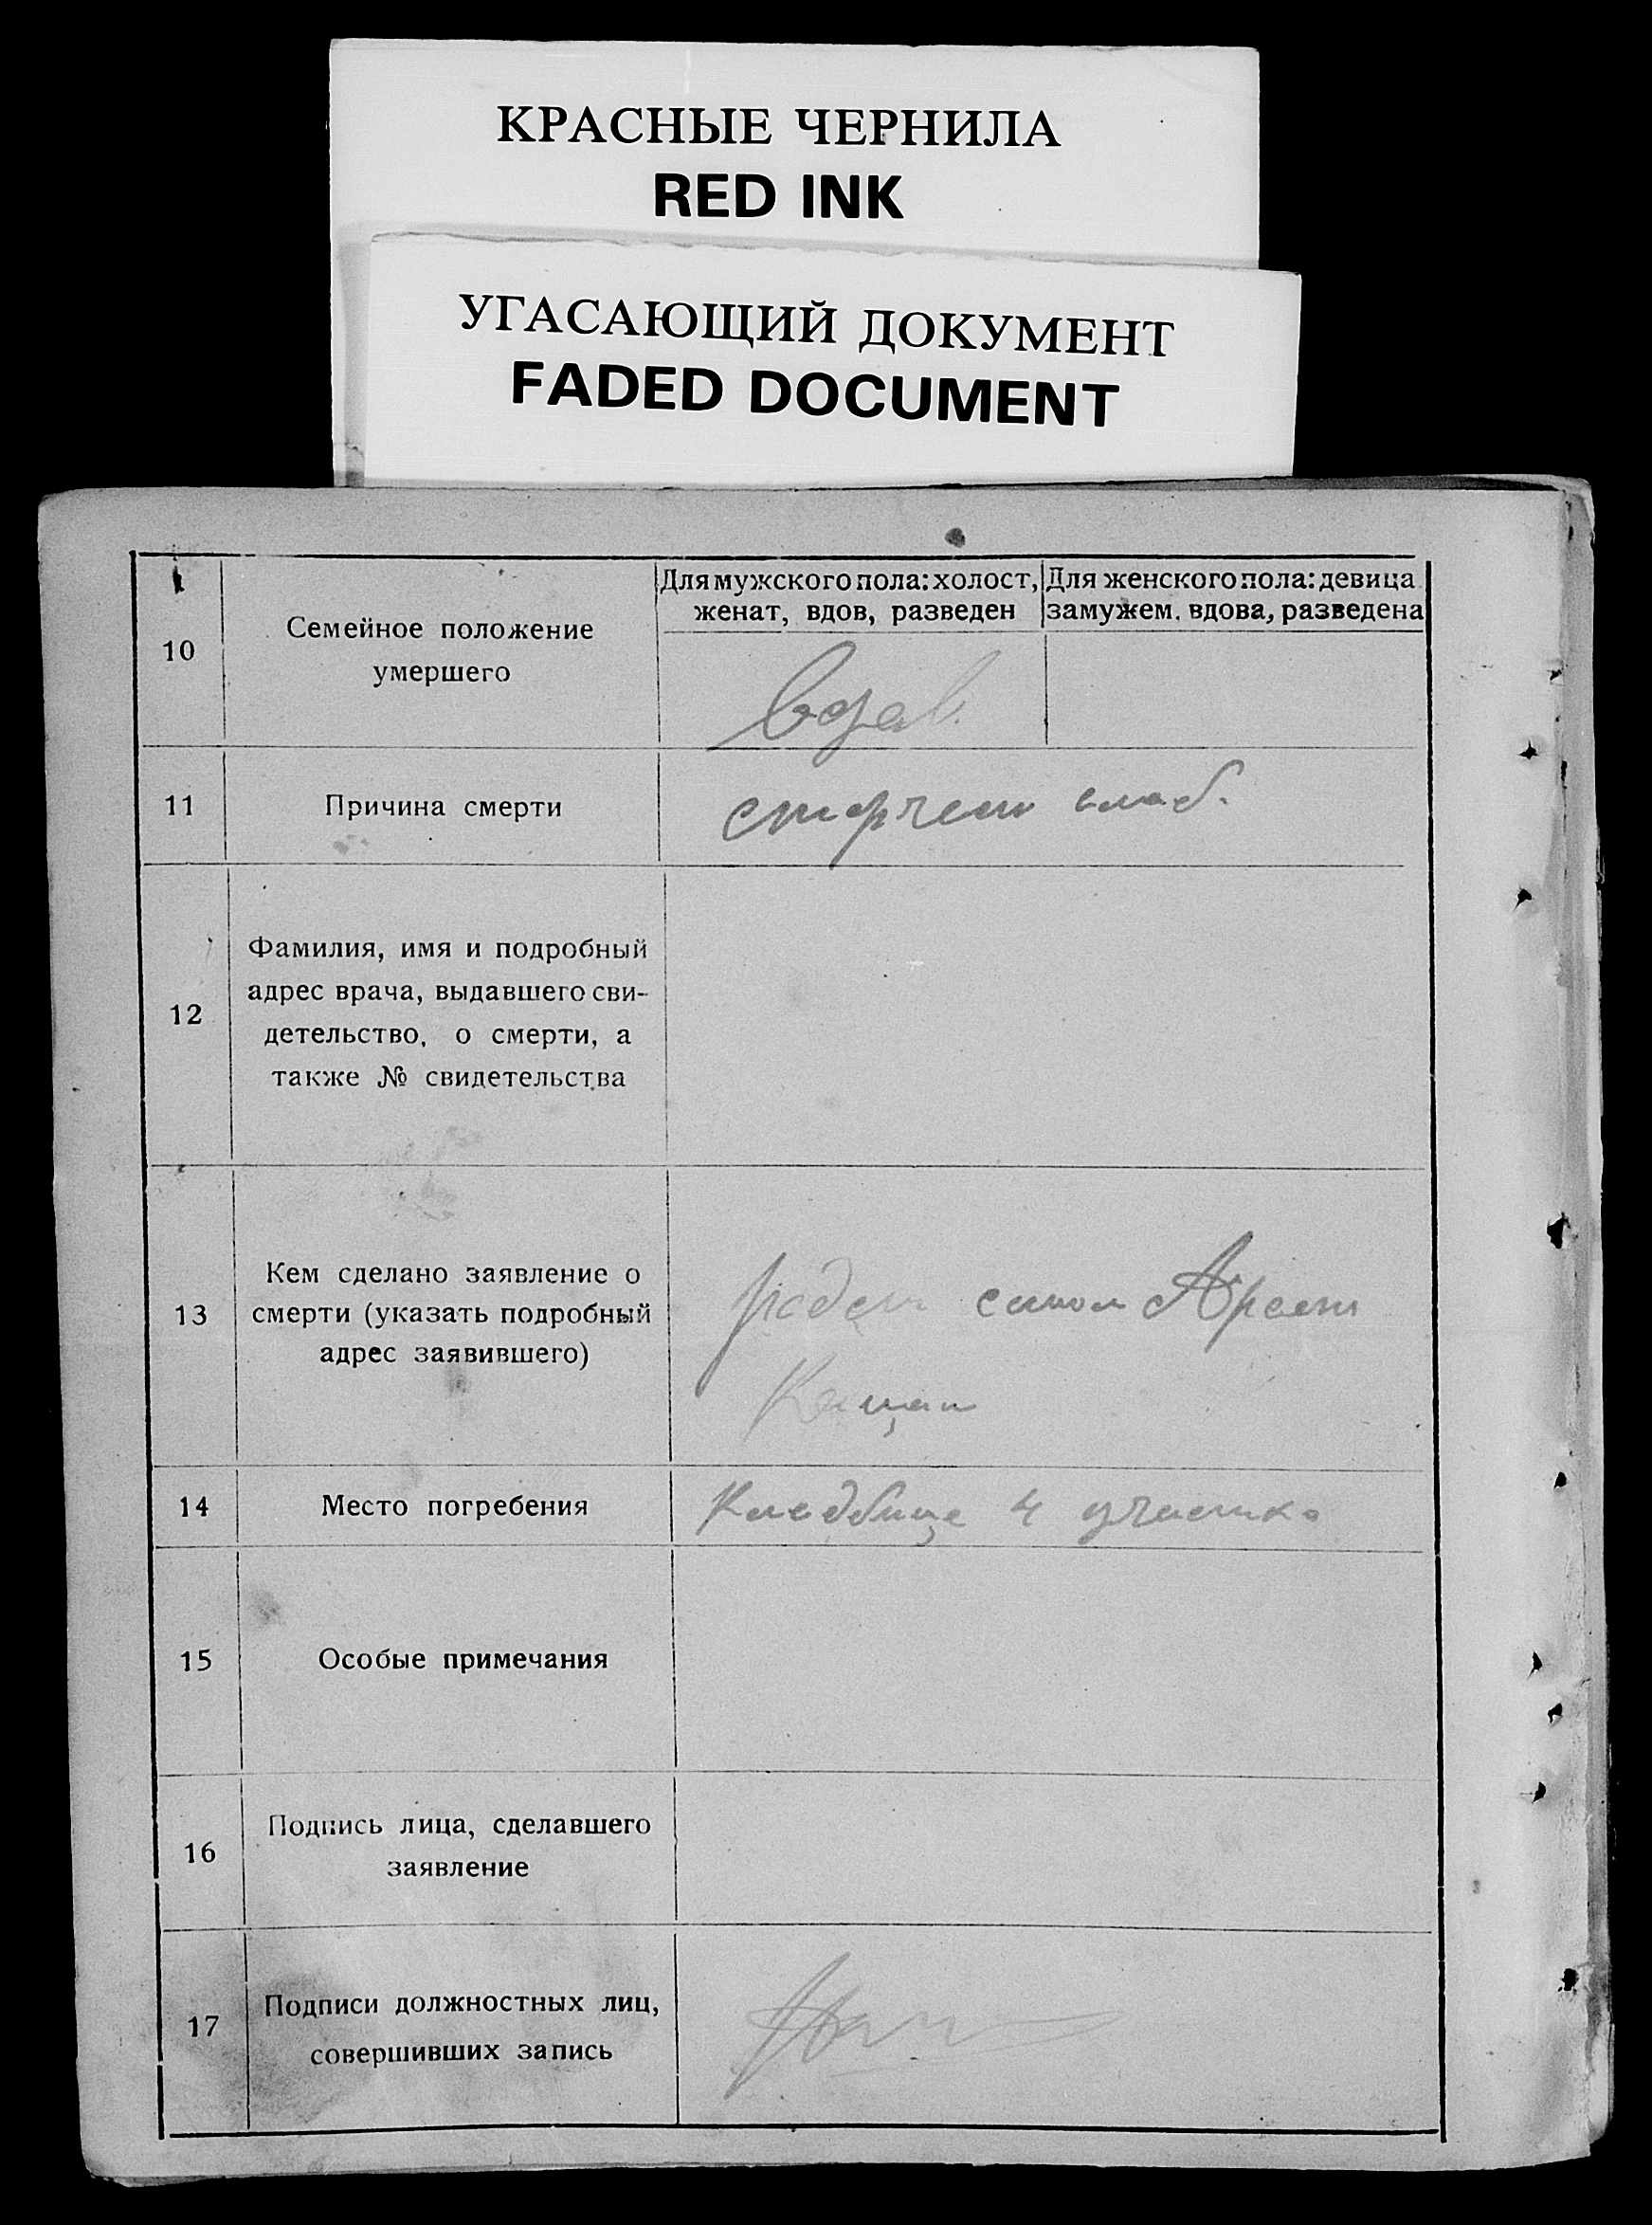 КРАСНЫЕ ЧЕРНИЛА
RED INK
УГАСАЮЩИЙ ДОКУМЕНТ
FADED DOCUMENT
10
Семейное положение
умершего
Для мужского пола: холост,
женат, вдов, разведен
Для женского пола: девица
замужем, вдова, разведена
вдов.
11
Причина смерти
слаб.
12
Фамилия, имя и подробный
адрес врача, выдавшего сви-
детельство, о смерти, а
также № свидетельства
13
Кем сделано заявление о
смерти (указать подробный
адрес заявившего)
сыном
14
Место погребения
Кладбище 4 участка
15
Особые примечания
16
Подпись лица, сделавшего
заявление
17
Подписи должностных лиц,
совершивших запись